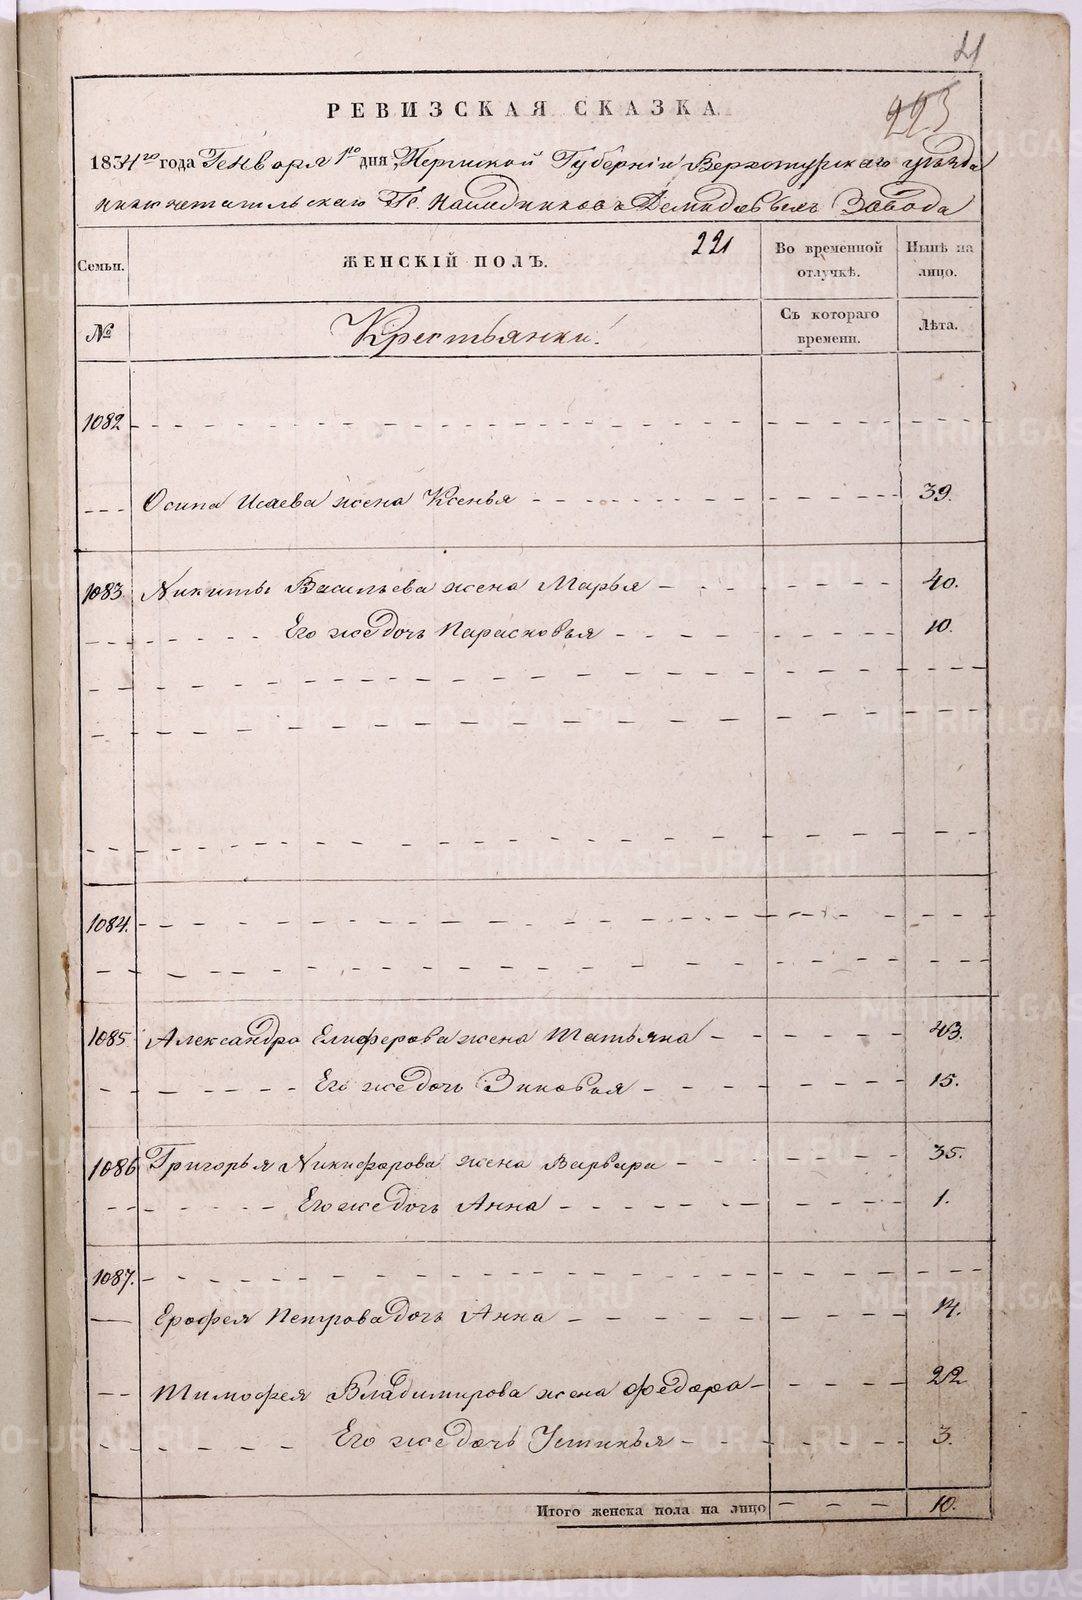 21
РЕВИЗСКАЯ СКАЗКА
223
1834го года Генваря 1го дня, Пермской Губерніи Верхотурскаго уѣзда
нижнетагильскаго Гг. Наследниковъ Демидовыхъ Завода
Семьи. ЖЕНСКІЙ ПОЛЪ. 221 Во временной отлучкѣ. Нынѣ на лицо.
№ Крестьянки. Съ котораго времени. Лѣта.
1082
Осипа Исаева жена Ксенья 39.
1083 Никиты Васильева жена Марья 40.
Его же дочь Парасковья 10.
1084.
1085 Александра Елиферова жена Татьяна 43.
Его же дочь Зиновья 15.
1086 Григорья Никифорова жена Варвара 35.
Его же дочь Анна 1.
1087.
Ерофея Петрова дочь Анна 14.
Тимофея Владимирова жена Федора 22
Его же дочь Устинья 3.
Итого женска пола на лицо 10.
METRIKI.GASO-URAL.RU